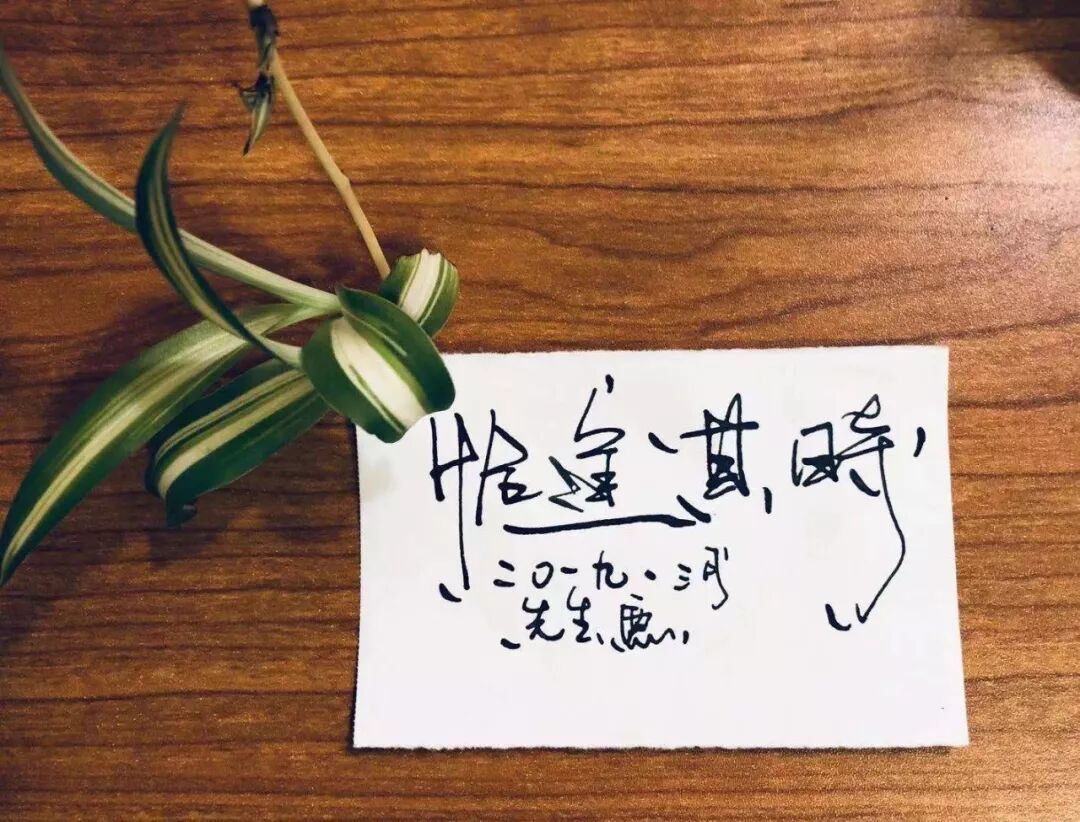 恰逢其時
二〇一九·三月
先生